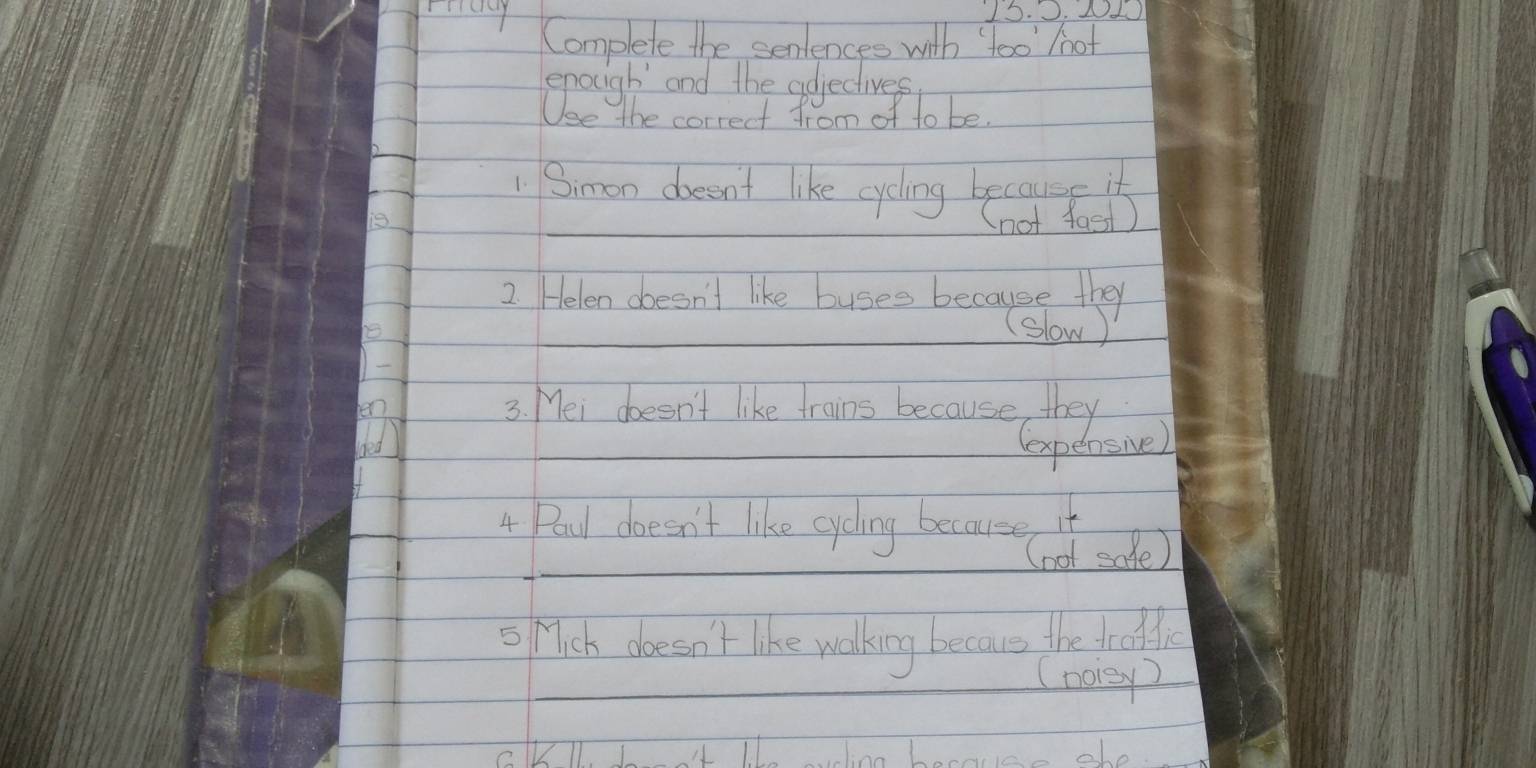 Friday 23.5.2025
Complete the sentences with 'too' / 'not
enough' and the adjectives.
Use the correct from of to be.
1. Simon doesn't like cycling because it
(not fast)
2. Helen doesn't like buses because they
(slow)
3. Mei doesn't like trains because they
(expensive)
4. Paul doesn't like cycling because it
(not safe)
5 Mick doesn't like walking becaus the traffic
(noisy)
6 Kelly doesn't like cycling because she